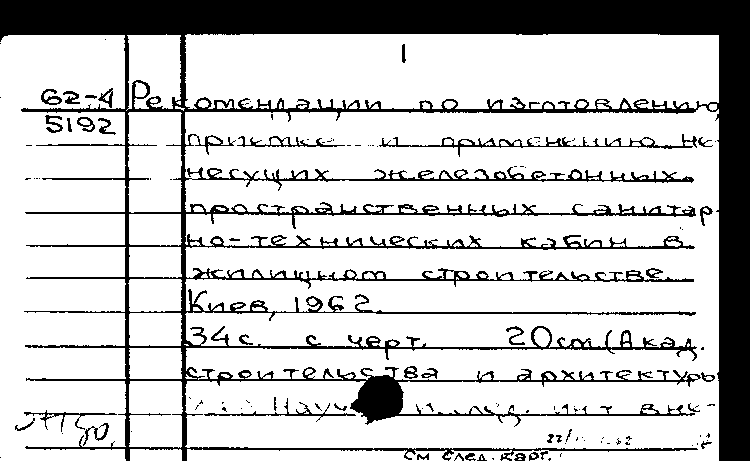 1
62-4 Рекомендации по изготовлению,
5192
приемке и применению не-
несущих железобетонных
пространственных санитар-
но-технических кабин в
жилищном строительстве.
Киев, 1962.
34с. с черт. 20см. (Акад.
строительства и архитектуры
Науч. исслед. ин-т
см след. карт.